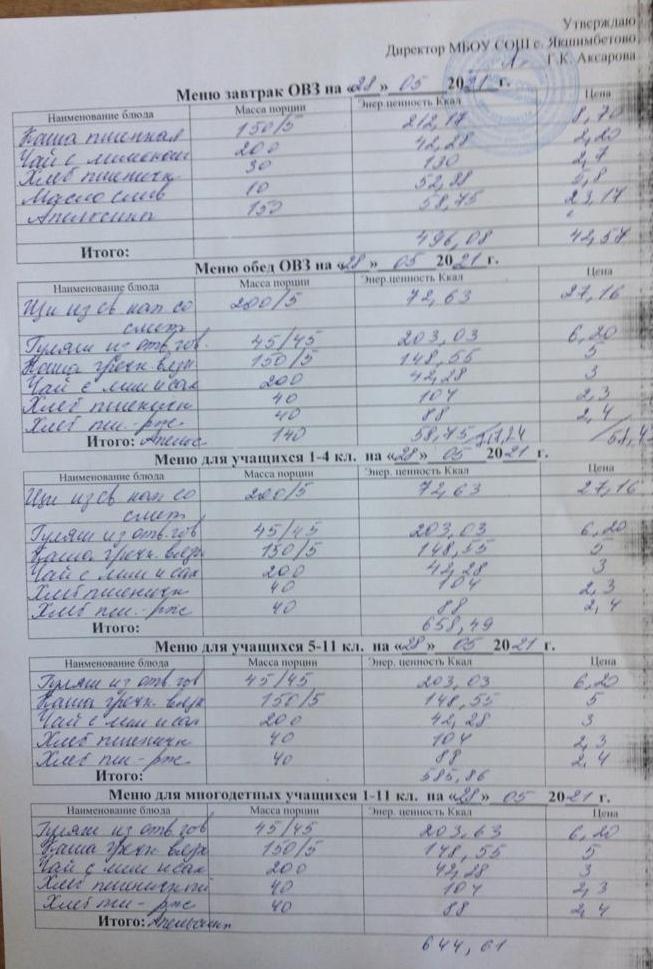 Утверждаю
Директор МБОУ СОШ с. Якшимбетово
Г.К. Аксарова
Меню завтрак ОВЗ на «28» 05 2021 г.
Наименование блюда Масса порции Энер.ценность Ккал Цена
Каша пшенная 150/5 212,17 8,70
Чай с лимоном 200 42,28 2,20
Хлеб пшеничн 30 130 2,7
Масло слив 10 52,88 5,8
Апельсин 150 58,75 23,17
496,08 42,57
Итого:
Меню обед ОВЗ на «28» 05 2021 г.
Наименование блюда Масса порции Энер.ценность Ккал Цена
Щи из св кап со 200/5 72,63 27,16
смет
Гуляш из отв. гов. 45/45 203,03 6,20
Каша гречн вязк 150/5 148,55 5
Чай с лим и сах 200 42,28 3
Хлеб пшеничн 40 104 2,3
Хлеб пш.-рж. 40 88 2,4
Итого: Апельс 140 58,75
Меню для учащихся 1-4 кл. на «28» 05 2021 г.
Наименование блюда Масса порции Энер. ценность Ккал Цена
Щи из св кап со 200/5 72,63 27,16
смет
Гуляш из отв. гов 45/45 203,03 6,20
Каша гречн. вязк 150/5 148,55 5
Чай с лим и сах 200 42,28 3
Хлеб пшеничн 40 104 2,3
Хлеб пш.-рж 40 88 2,4
Итого: 658,49
Меню для учащихся 5-11 кл. на «28» 05 2021 г.
Наименование блюда Масса порции Энер. ценность Ккал Цена
Гуляш из отв гов 45/45 203,03 6,20
Каша гречн. вязк 150/5 148,55 5
Чай с лим и сах 200 42,28 3
Хлеб пшеничн 40 104 2,3
Хлеб пш-рж 40 88 2,4
Итого: 585,86
Меню для многодетных учащихся 1-11 кл. на «28» 05 2021 г.
Наименование блюда Масса порции Энер. ценность Ккал Цена
Гуляш из отв гов 45/45 203,63 6,20
Каша гречн вязк 150/5 148,55 5
Чай с лим и сах 200 42,28 3
Хлеб пшеничный 40 104 2,3
Хлеб пш-рж 40 88 2,4
Итого: Апельсин
644,61